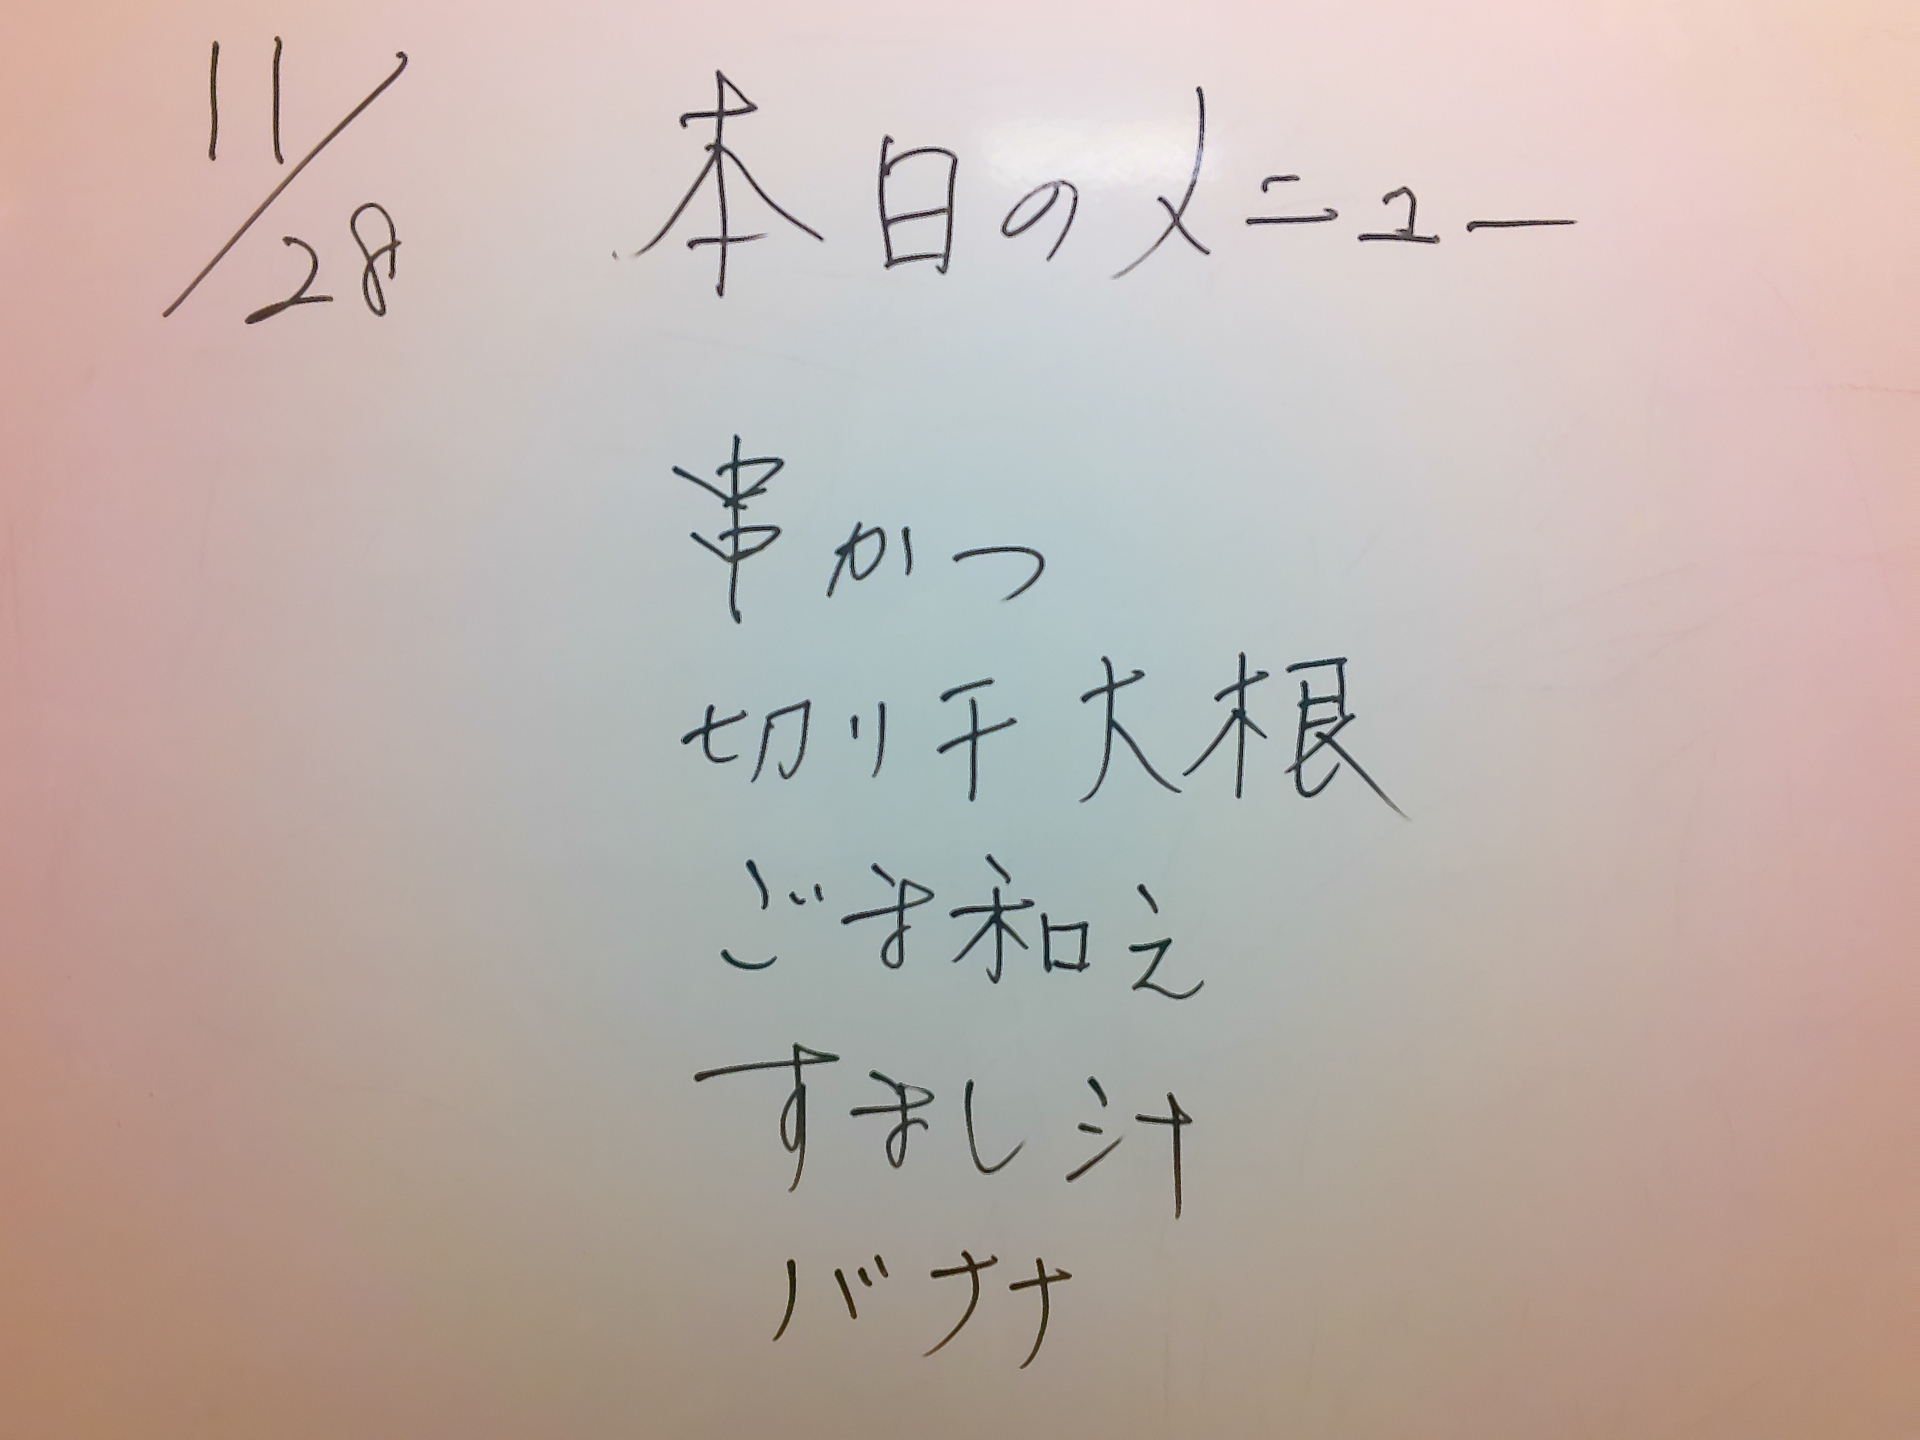 11/28 本日のメニュー
串かつ
切り干大根
ごま和え
すまし汁
バナナ